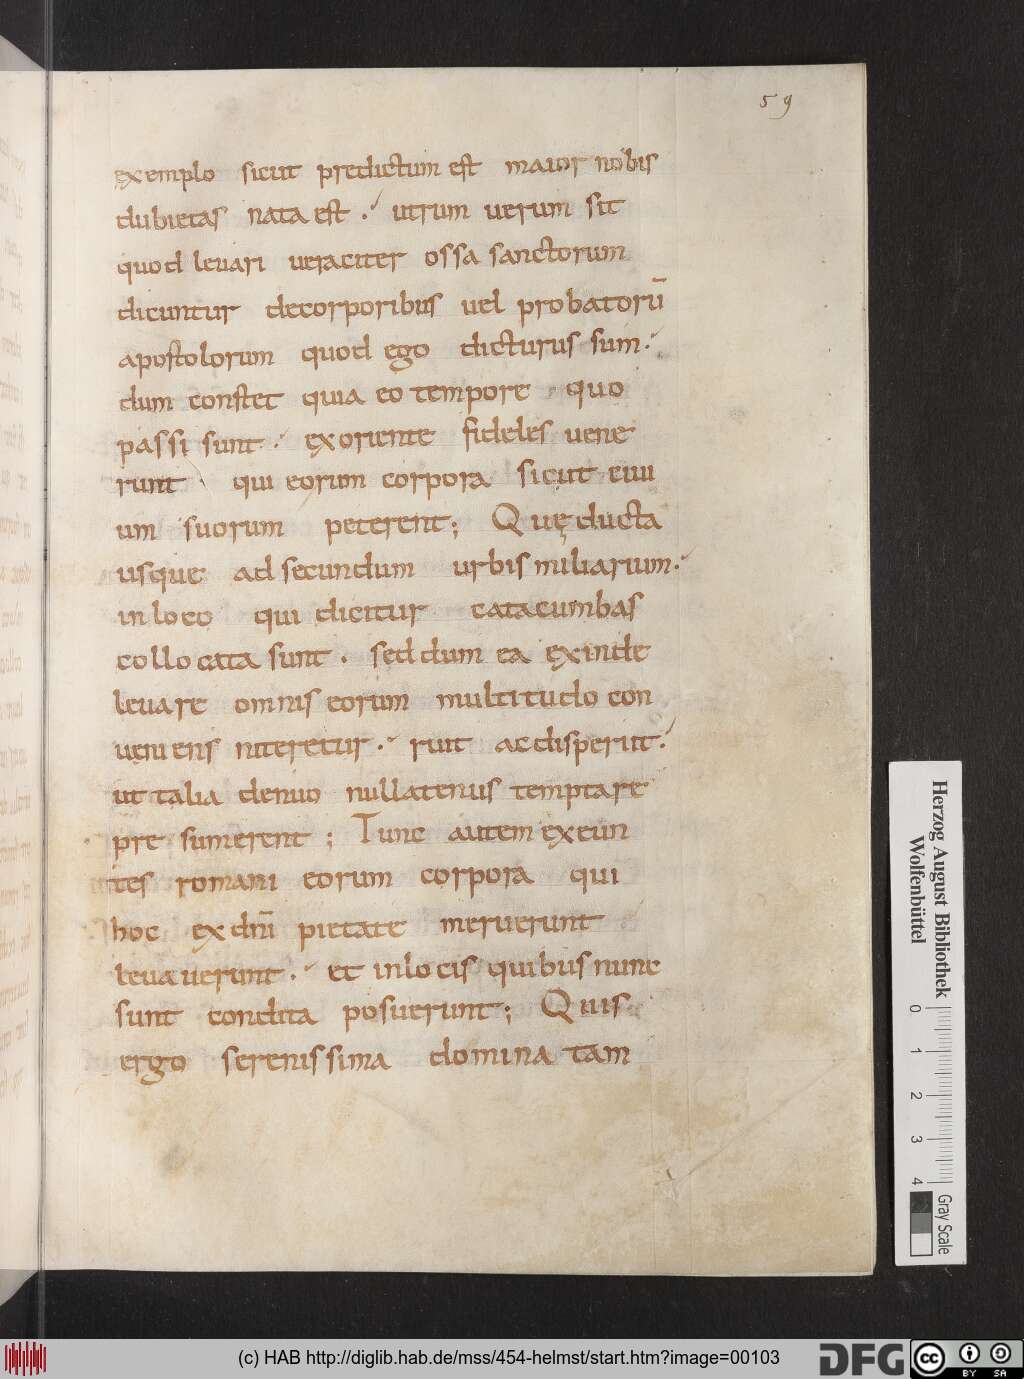 59
exemplo sicut predictum est maior nobis
dubietas nata est . utrum uerum sit
quod leuari ueraciter ossa sanctorum
dicuntur decorporibus uel probatorū
apostolorum quod ego dicturus sum.
dum constet quia eo tempore quo
passi sunt . exoriente fideles uene
runt qui eorum corpora sicut ciui
um suorum peterent; Quę ducta
usque ad secundum urbis miliarium.
in loco qui dicitur catacumbas
collocata sunt . sed dum ea exinde
leuare omnis eorum multitudo con
ueniens niteretur . ruit ac disperiit.
ut talia denuo nullatenus temptare
pre sumerent ; Tunc autem exeun
tes romani eorum corpora qui
hoc ex dn̄i pietate meruerunt
leuauerunt . et in locis quibus nunc
sunt condita posuerunt; Quis
ergo serenissima domina tam
Herzog August Bibliothek
Wolfenbüttel
0 1 2 3 4
Gray Scale
(c) HAB http://diglib.hab.de/mss/454-helmst/start.htm?image=00103
DFG
cc BY SA